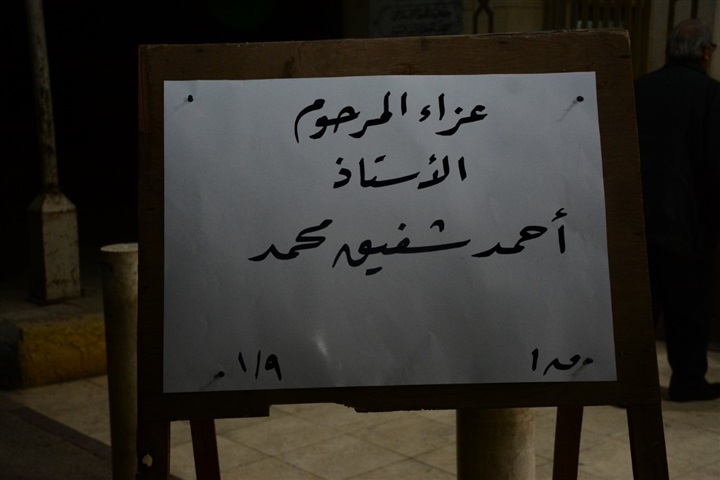 عزاء المرحوم
الأستاذ
أحمد شفيق محمد
١/٩